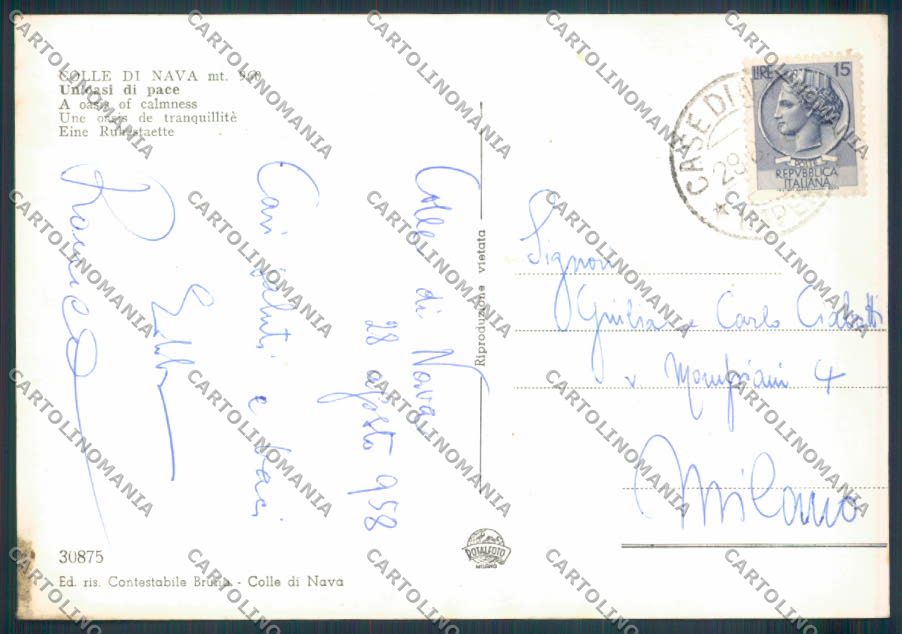 COLLE DI NAVA mt. 960
Un'oasi di pace
A oasis of calmness
Une oasis de tranquillitè
Eine Ruhestaette
Colle di Nava
28 agosto 958
Cari saluti e baci
Riproduzione vietata
CASE DI
28
LIRE 15
REPVBBLICA
ITALIANA
Signori
Giuliana e Carlo
v
4
Milano
ROTALFOTO
MILANO
30875
Ed. ris. Contestabile Bruna - Colle di Nava
CARTOLINOMANIA